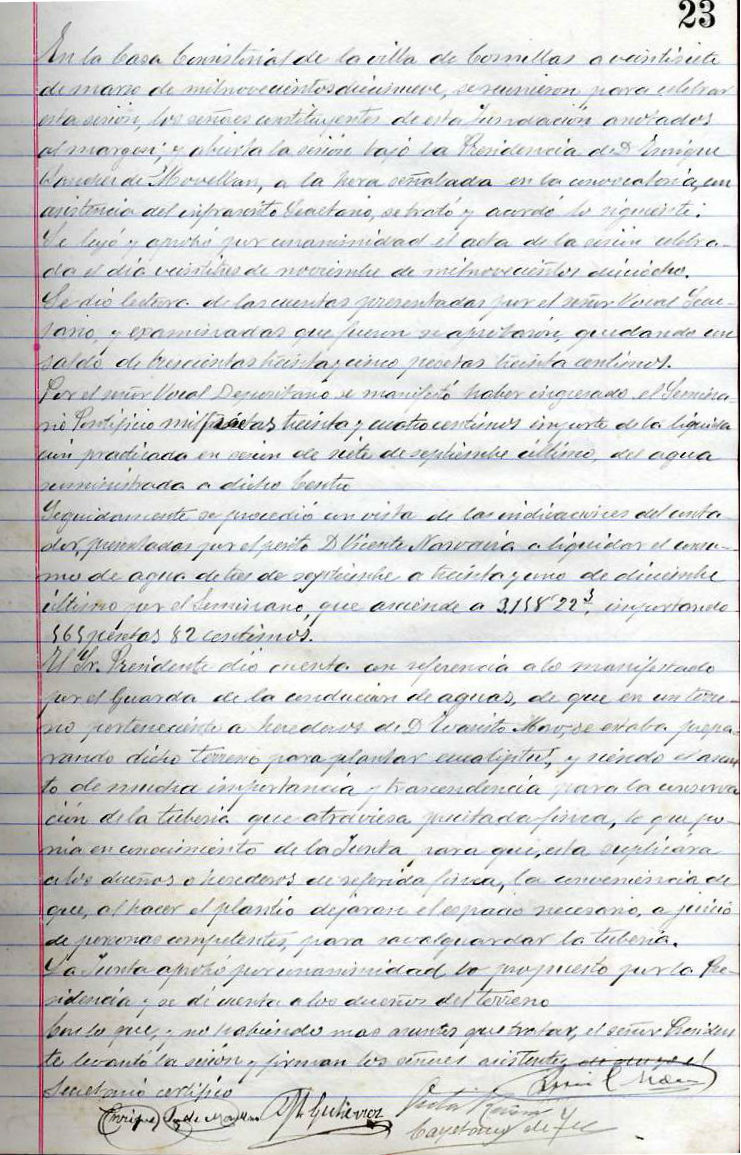 23
En la Casa Consistorial de la villa de Comillas a veintisiete
de marzo de mil novecientos diecinueve, se reunieron para celebrar
esta sesión, los señores constituyentes de esta Fundación anotados
al margen; y abierta la sesión bajo la Presidencia de D Enrique
de Movellan, a la hora señalada en la convocatoria, con
asistencia del infrascrito Secretario, se trató y acordó lo siguiente:
Se leyó y aprobó por unanimidad el acta de la sesión celebra-
da el día veintitres de noviembre de mil novecientos dieciocho.
Se dió lectura de las cuentas presentadas por el señor Vocal Secre-
tario, y examinadas que fueron se aprobaron, quedando un
saldo de trescientas treinta y cinco pesetas treinta centimos.
Por el señor Vocal Depositario se manifestó haber ingresado el Semina-
rio Pontificio mil pesetas treinta y cuatro centimos importe de la liquida
ción practicada en sesión de siete de septiembre último, del agua
suministrada a dicho Centro
Seguidamente se procedió con vista de las indicaciones del conta
dor, presentadas por el perito D Vicente a liquidar el consu-
mo de agua de tres de septiembre a treinta y uno de diciembre
último por el Seminario, que asciende a 3158'22 importando
565 pesetas 82 centimos.
El Sr. Presidente dió cuenta con referencia a lo manifestado
por el Guarda de la conducción de aguas, de que en un terre-
no perteneciente a herederos de D se estaba prepa-
rando dicho terreno para plantar eucaliptus, y siendo el asun
to de mucha importancia y trascendencia para la conserva
ción de la tuberia que atraviesa precitada finca, lo que po-
nia en conocimiento de la Junta para que, esta suplicara
a los dueños o herederos de referida finca, la conveniencia de
que, al hacer el plantio dejaran el espacio necesario, a juicio
de personas competentes, para savalguardar la tuberia.
La Junta aprobó por unanimidad lo propuesto por la Pre-
sidencia y se dé cuenta a los dueños del terreno
Con lo que, y no habiendo mas asuntos que tratar, el señor Presiden
te levantó la sesión y firman los señores asistentes de que el
Secretario certifico
Enrique de Movellan
Gutierrez
Cayetano de